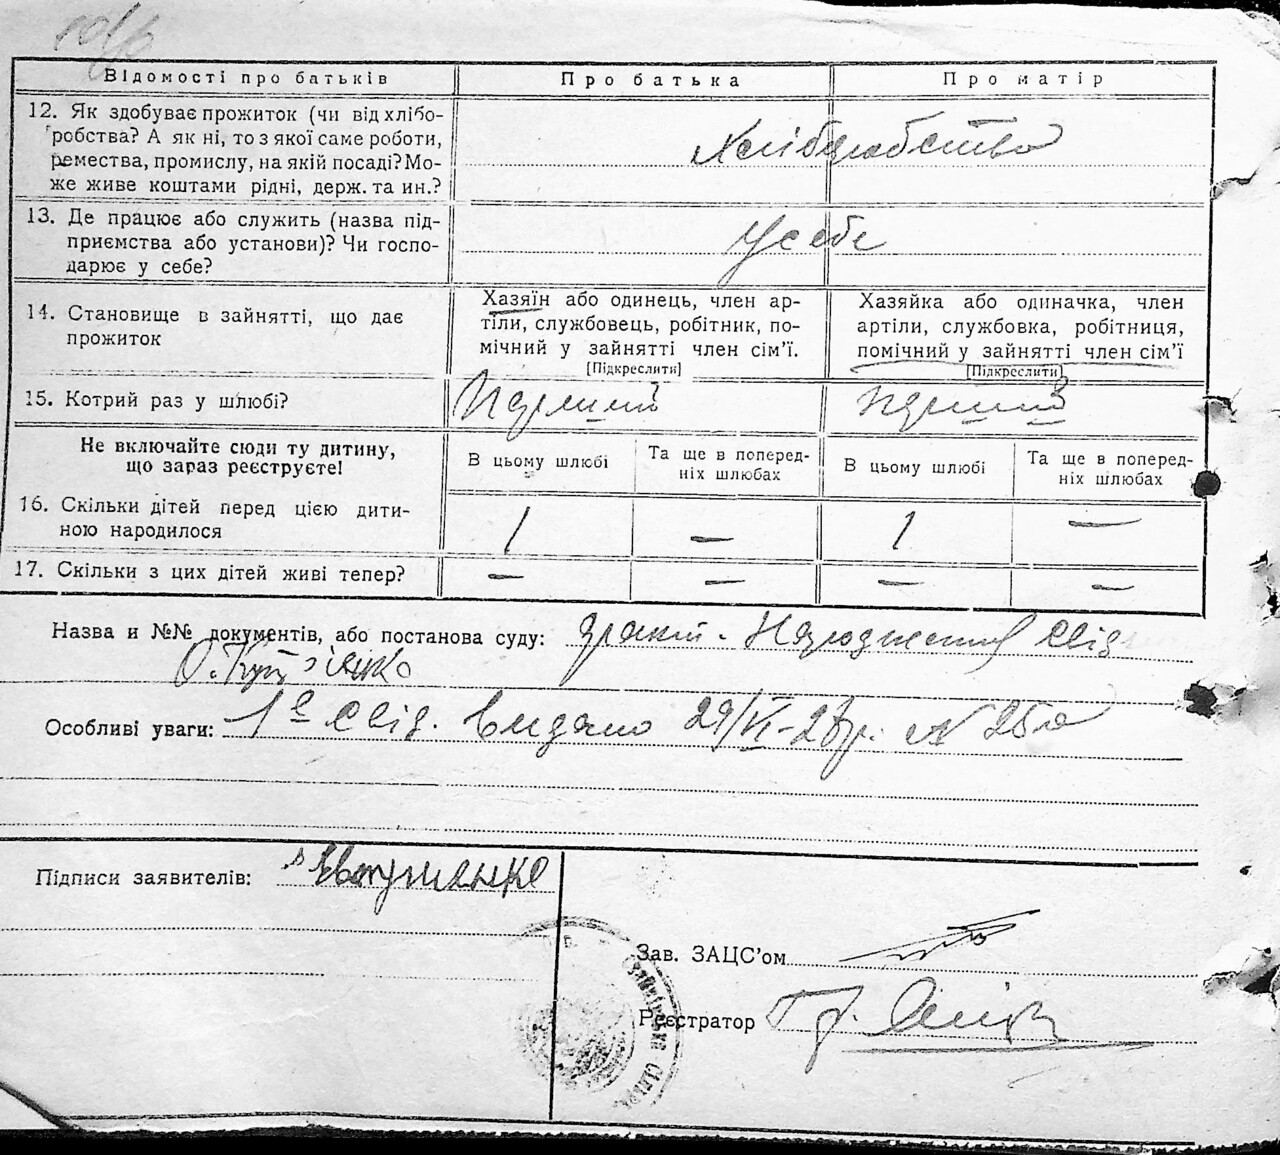 Відомості про батьків Про батька Про матір
12. Як здобуває прожиток (чи від хлібо-
робства? А як ні, то з якої саме роботи,
ремества, промислу, на якій посаді? Мо-
же живе коштами рідні, держ. та ин.?
Хліборобство
13. Де працює або служить (назва під-
приємства або установи)? Чи госпо-
дарює у себе?
У себе
14. Становище в зайнятті, що дає
прожиток
Хазяїн або одинець, член ар-
тіли, службовець, робітник, по-
мічний у зайнятті член сім'ї.
[Підкреслити]
Хазяйка або одиначка, член
артіли, службовка, робітниця,
помічний у зайнятті член сім'ї
[Підкреслити]
15. Котрий раз у шлюбі? Перший Перший
Не включайте сюди ту дитину,
що зараз реєструєте!
В цьому шлюбі
Та ще в поперед-
ніх шлюбах
В цьому шлюбі
Та ще в поперед-
ніх шлюбах
16. Скільки дітей перед цією дити-
ною народилося
1 — 1 —
17. Скільки з цих дітей живі тепер? — — — —
Назва и №№ документів, або постанова суду:
Особливі уваги: 1е Свід. видано 29/VI-27р. N
Підписи заявителів:
Зав. ЗАЦС'ом
Реєстратор Гр.